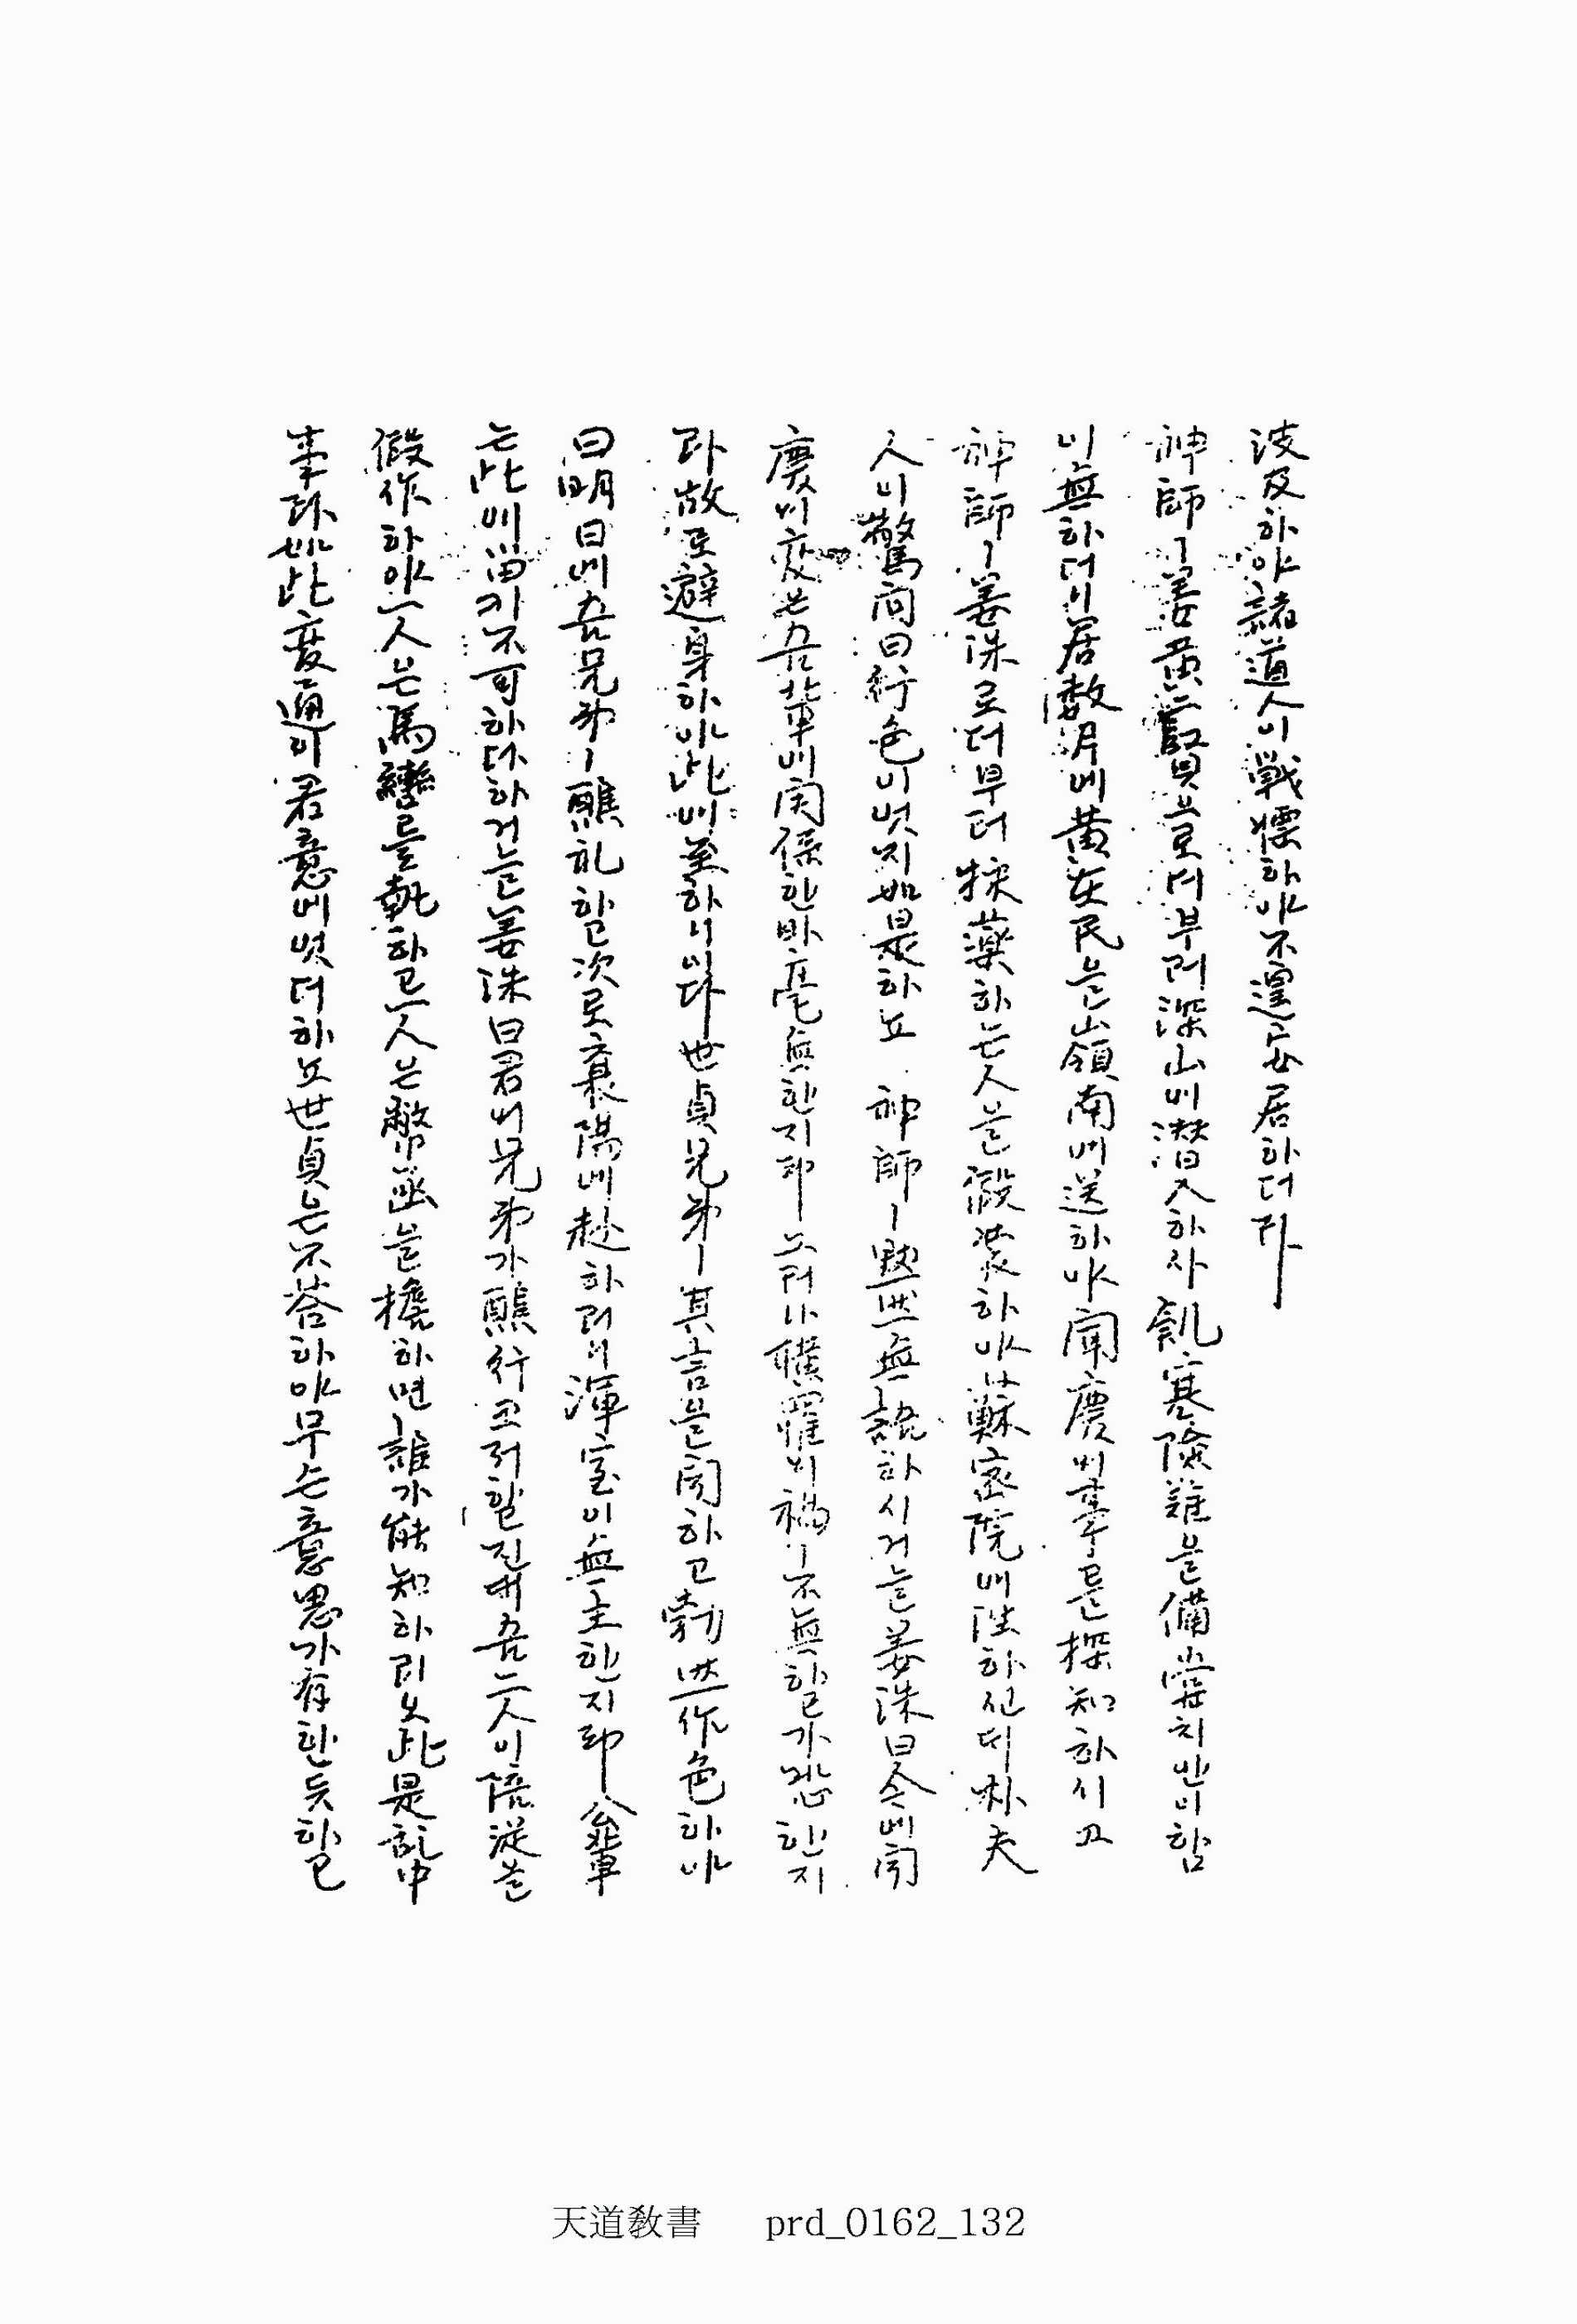 波及하야諸道人이戰慄하야不遑安居하더라
神師ㅣ姜黃二賢으로더부러深山에潛入하사飢寒險難을備嘗치안이함
이無하더니居數月에黃在民을嶺南에送하야聞慶의事를探知하시고
神師ㅣ姜洙로더부터採藥하는人을假裝하야蘇密院에往하신대朴夫
人이驚問曰行色이엇지如是하뇨 神師ㅣ默然無語하시거늘姜洙曰今에聞
慶의変은吾輩에関係한바毫無한지라ㅣ그러나橫罹의禍ㅣ不無할가恐한지
라故로避身하야此에至하니이다世貞兄弟ㅣ其言을聞하고勃然作色하야
曰明日에吾兄弟ㅣ醮礼할次로襄陽에赴하려니渾室이無主한지라ㅣ公輩
는此에留키不可하다하거늘姜洙曰君의兄弟가醮行코저할진대吾二人이陪従을
假作하야一人은馬轡를執하고一人은幣函을擔하면誰가能知하리오此是乱中
事라如此変通이君意에엇더하뇨世貞은不答하야무슨意思가有한듯함
天道敎書 prd_0162_132